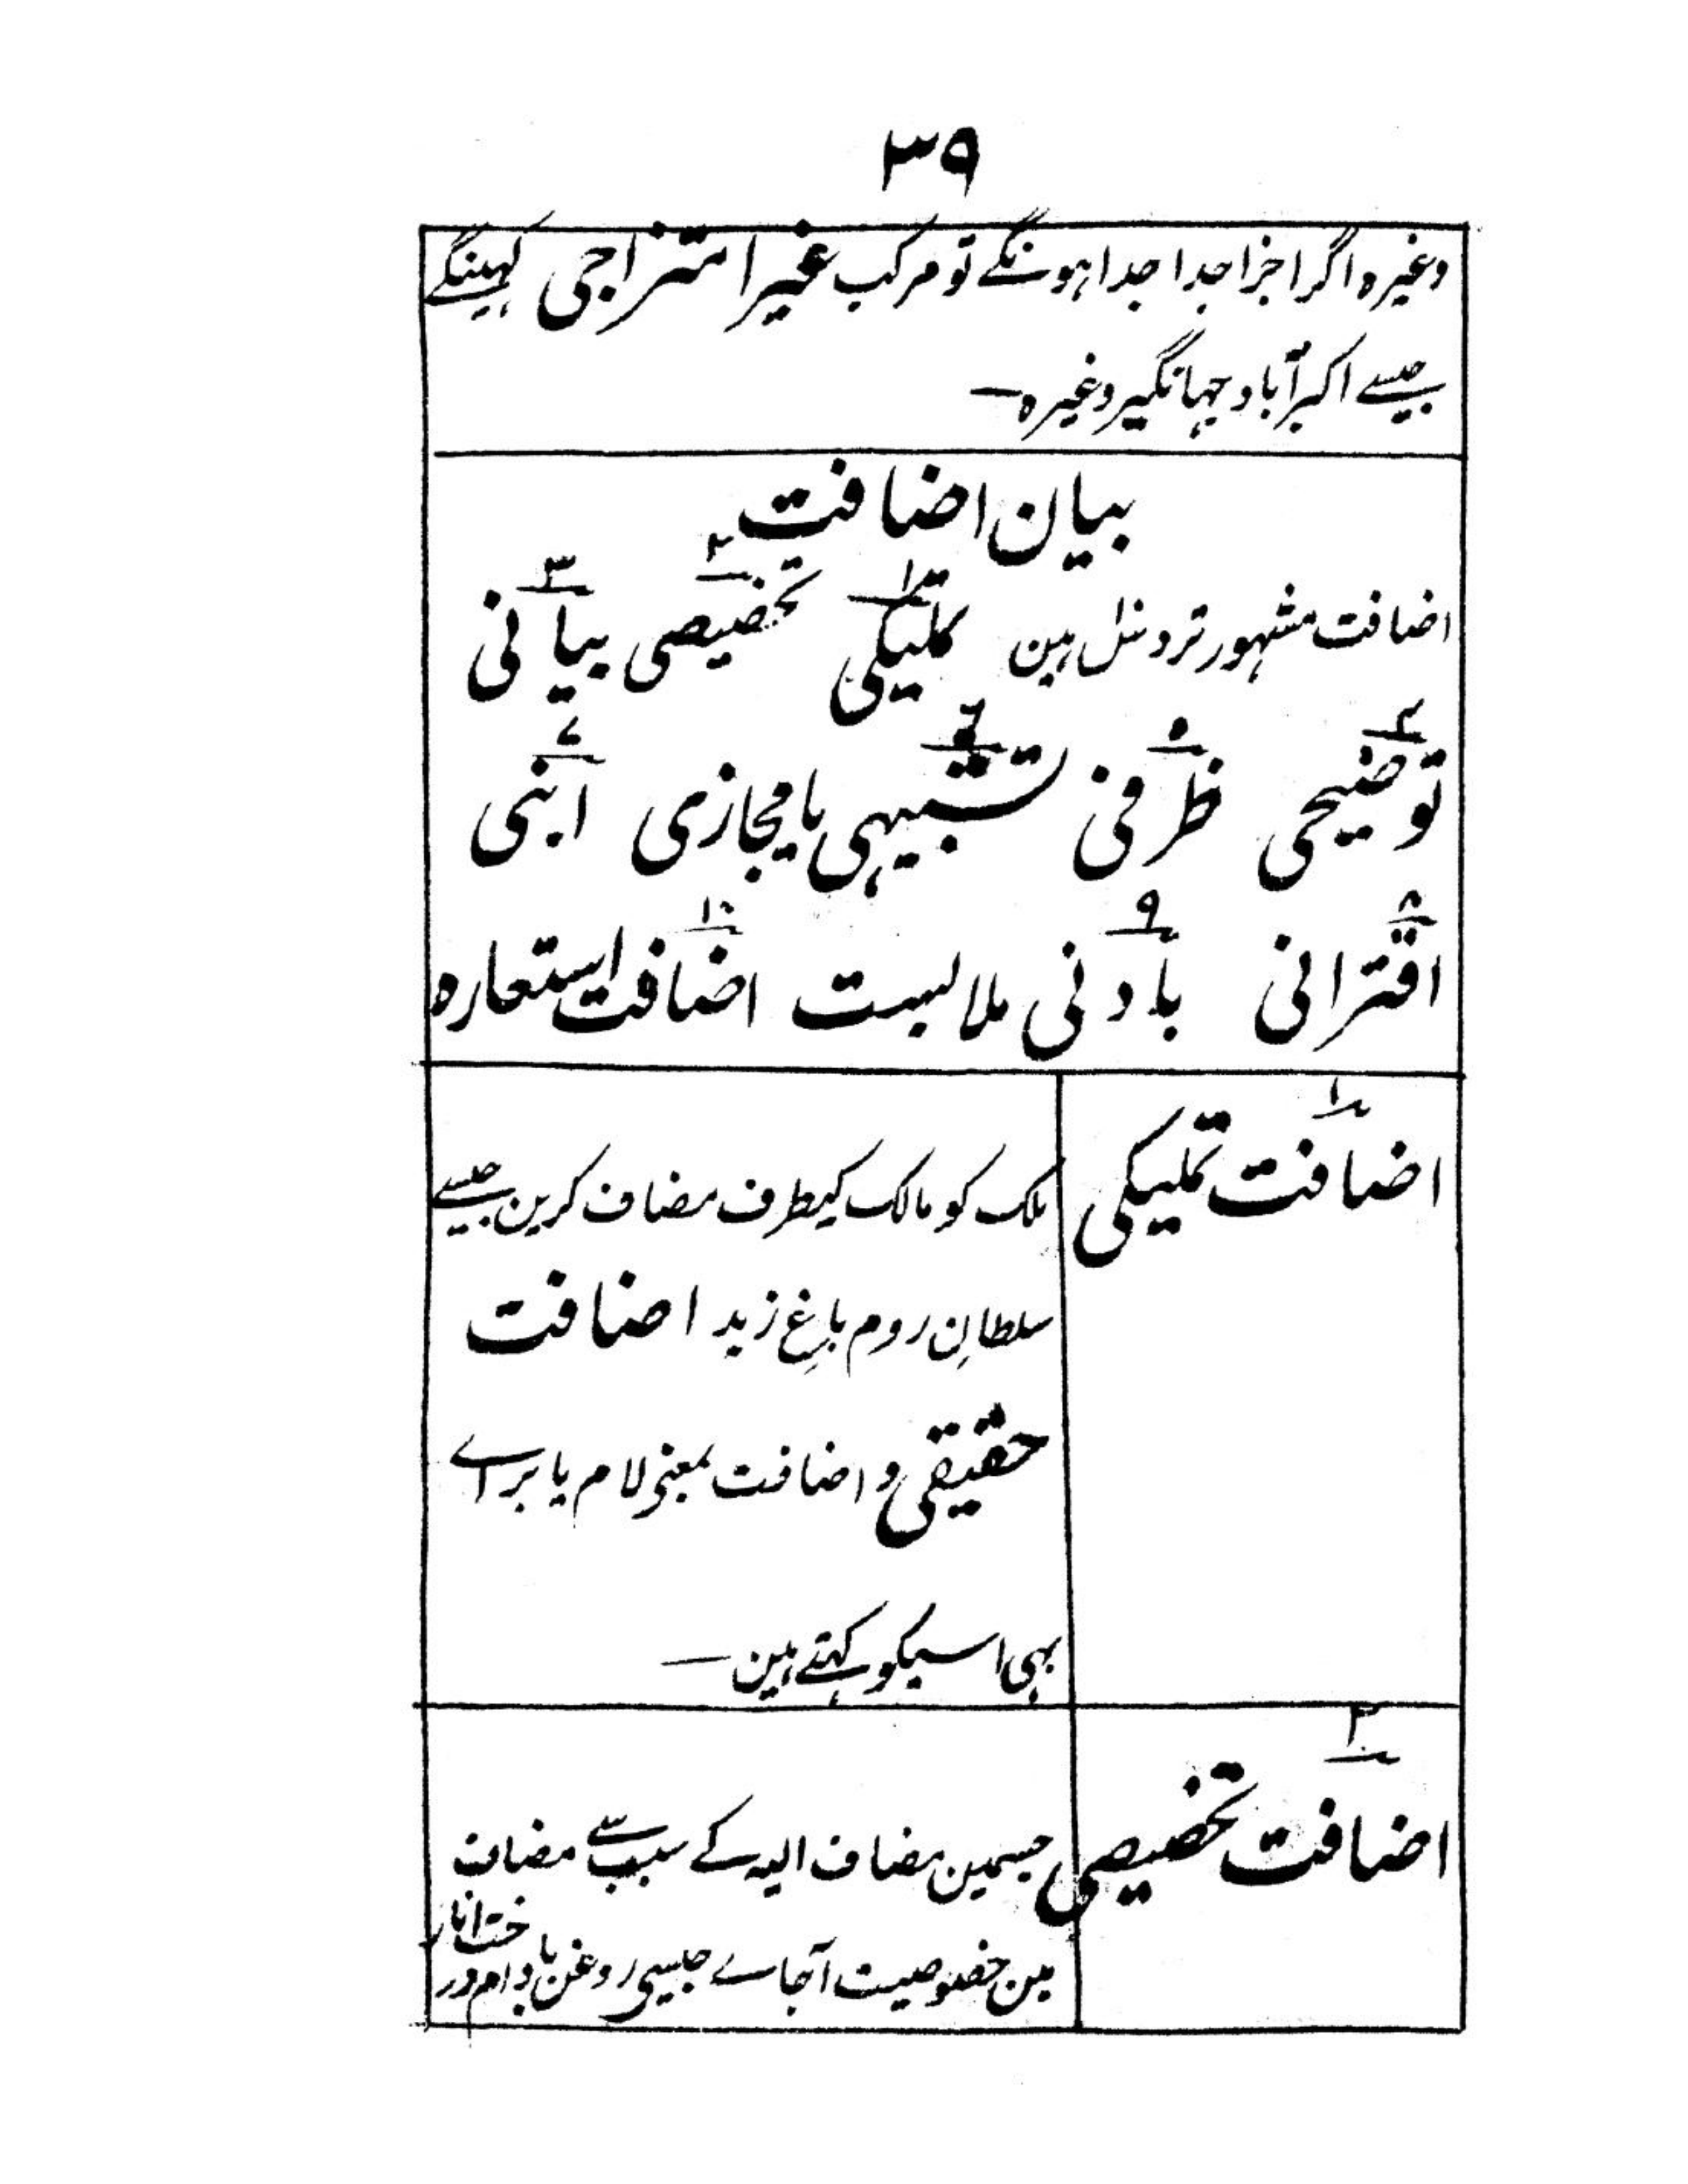 ۳۹
وغیرہ اگر اجزا جدا جدا ہونگے تو مرکب غیر امتزاجی کہینگے
جیسے اکبرآباد جہانگیر وغیرہ۔
بیان اضافت
اضافت مشہور تر دس ہین ۱ تملیکی ۲ تخصیصی ۳ بیانی
۴ توضیحی ۵ ظرفی ۶ تشبیہی یا مجازی ۷ ابنی
۸ اقترانی ۹ بادنی ملابست ۱۰ اضافت استعارہ
۱ اضافت تملیکی
ملک کو مالک کیطرف مضاف کرین جیسے
سلطانِ روم باغِ زید اضافت
حقیقی و اضافت بمعنی لام یا براے
بہی اسیکو کہتے ہین۔
۲ اضافت تخصیصی
جسمین مضاف الیہ کے سبب سے مضاف
مین خصوصیت آجاے جیسی روغن بادام در
خت انار